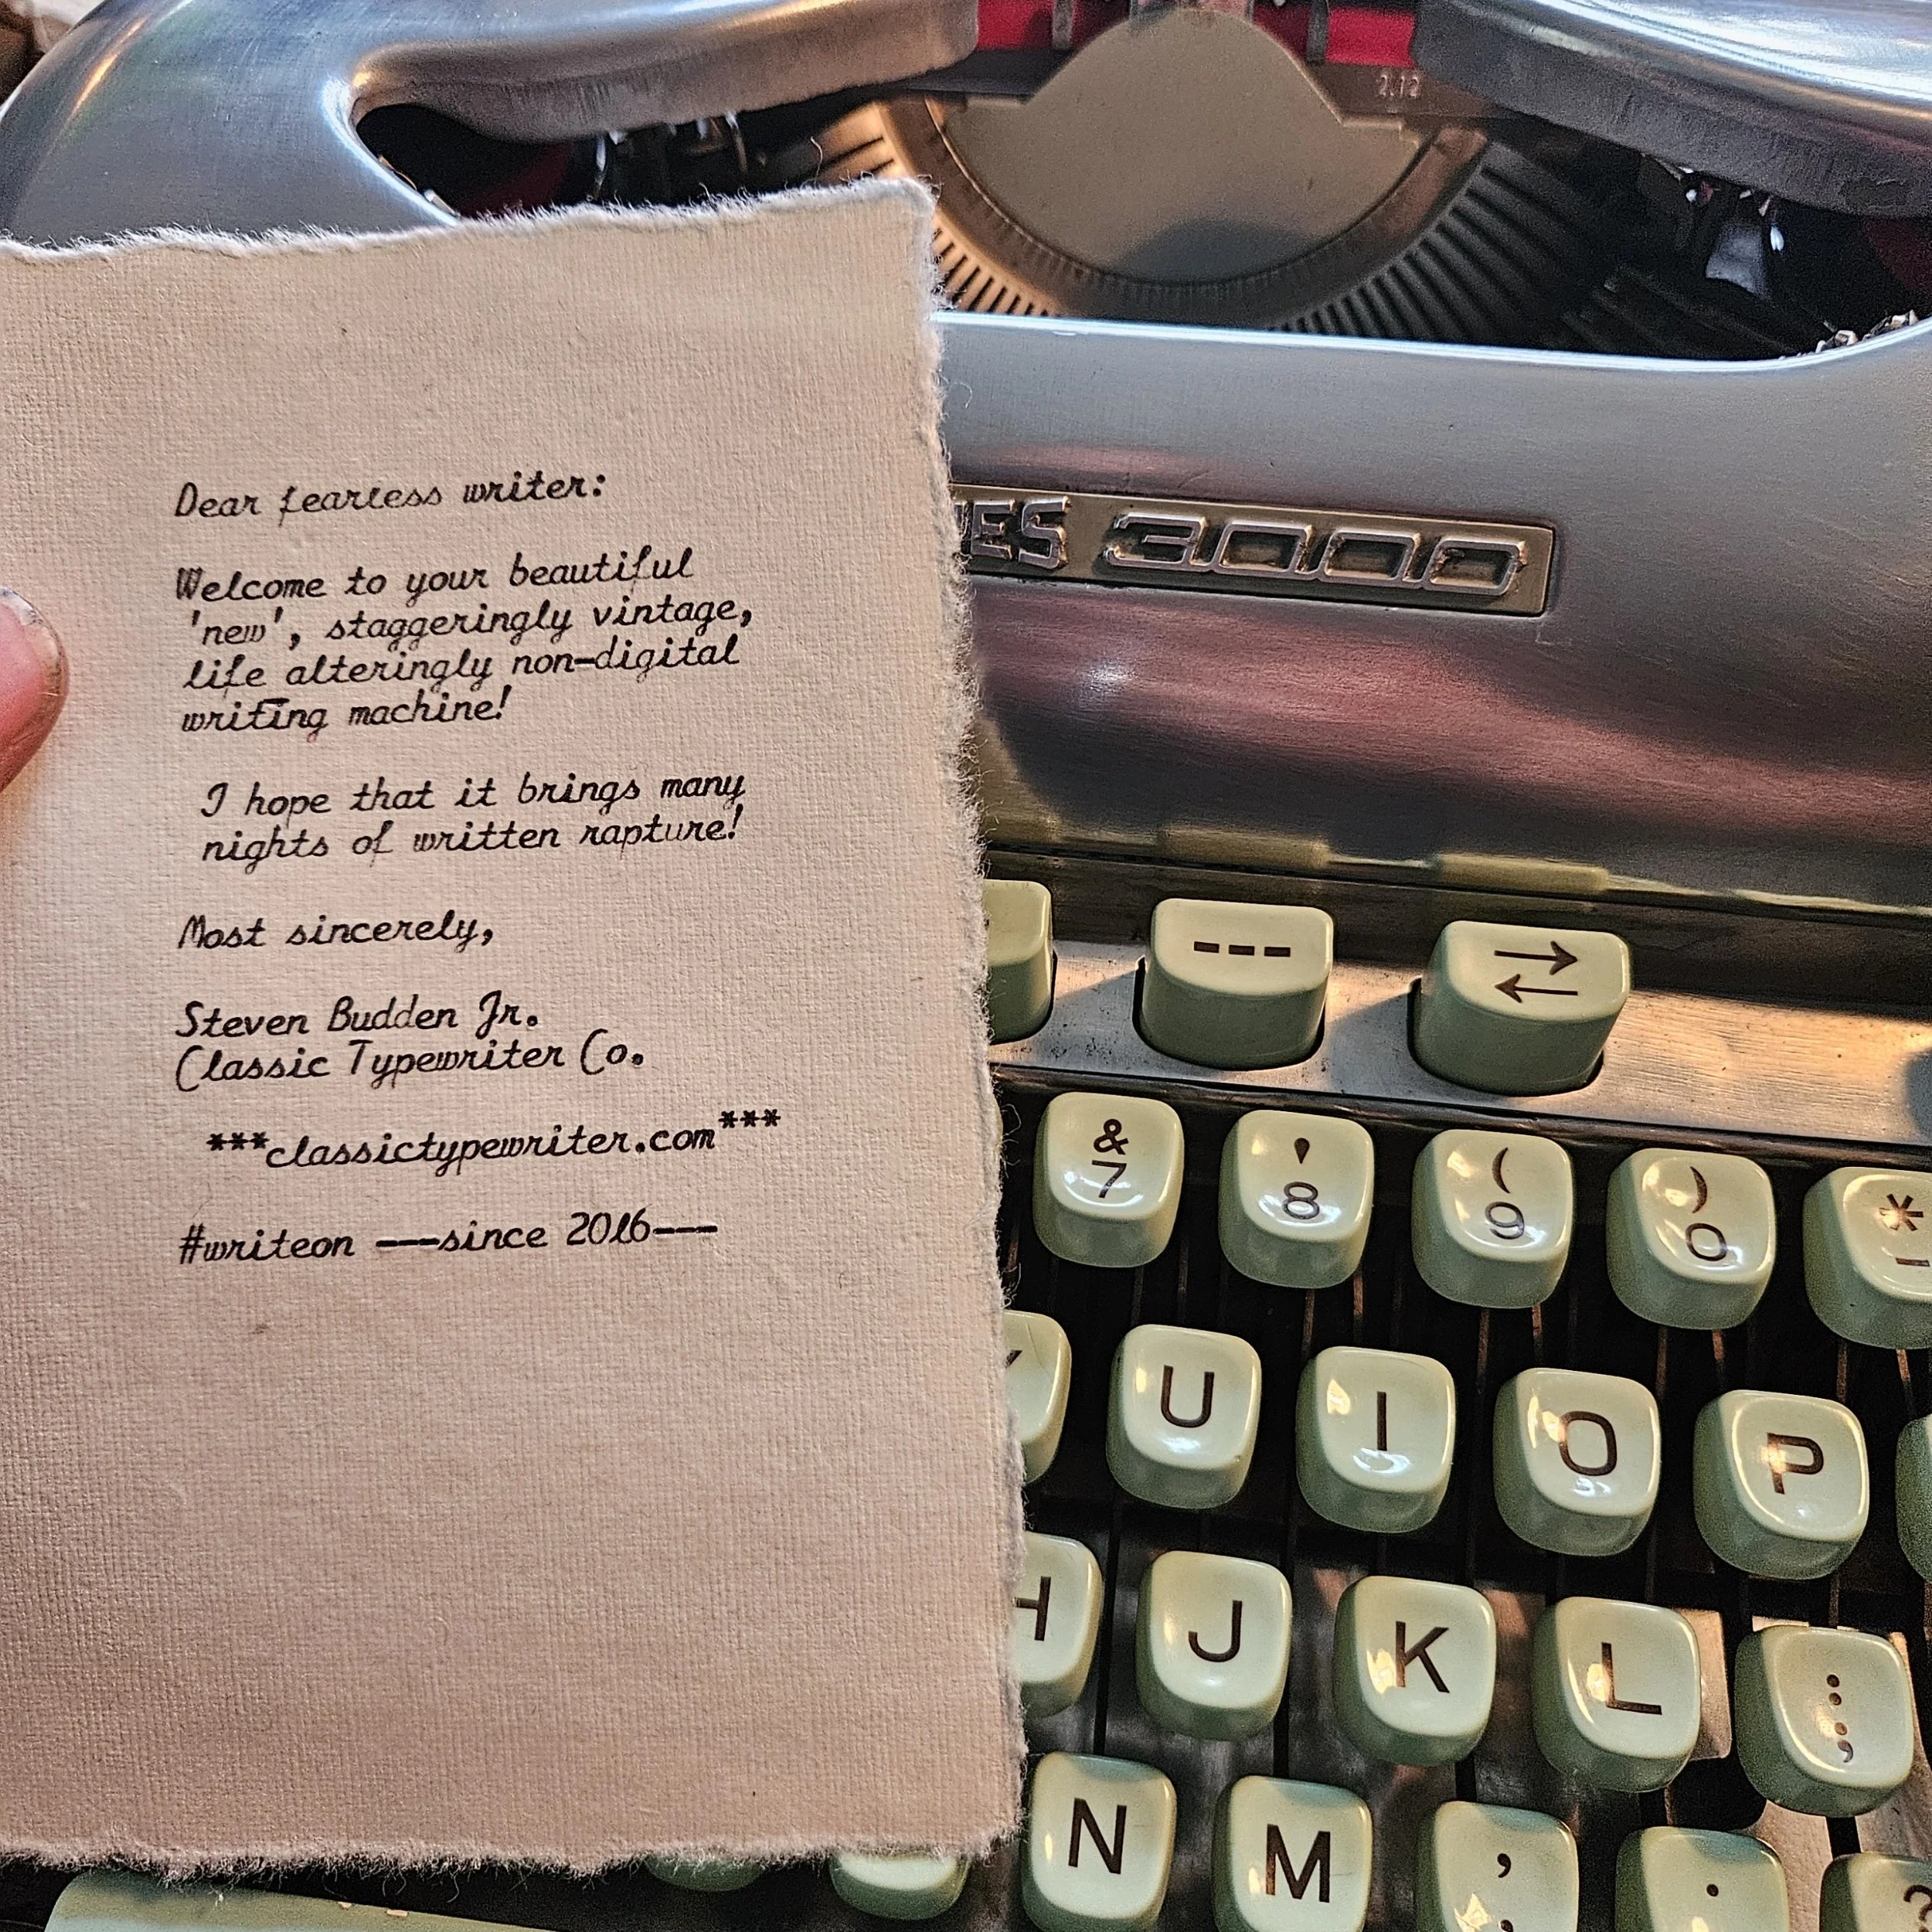 2.12
Dear fearless writer:
Welcome to your beautiful
'new', staggeringly vintage,
life alteringly non-digital
writing machine!
I hope that it brings many
nights of written rapture!
Most sincerely,
Steven Budden Jr.
Classic Typewriter Co.
***classictypewriter.com***
#writeon ---since 2016---
ES 3000
---
→
←
& ' ( ) *
7 8 9 0
U I O P
H J K L :
;
N M , .